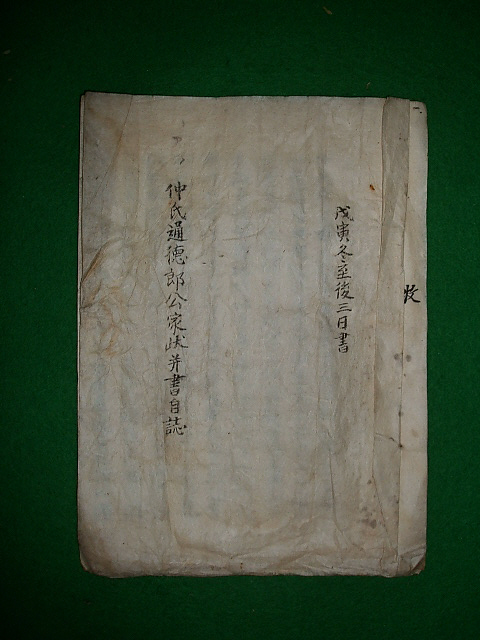 牧
戊寅冬至後三日書
仲氏通德郎公家狀并書自誌